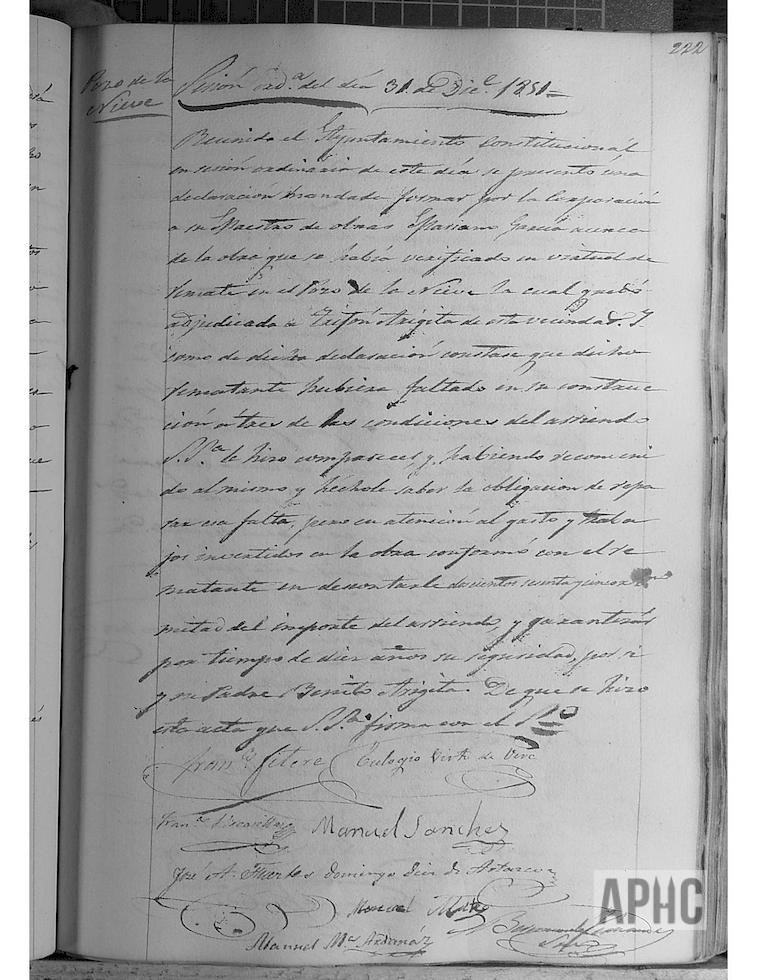 222
Pozo de la
Nieve
Sesión ord.ª del día 31 de Dic.e 1851=
Reunido el Ayuntamiento Constitucional
en sesión ordinaria de este día se presentó una
declaración mandada formar por la Corporación
a su Maestro de obras Mariano García acerca
de la obra que se había verificado en virtud de
remate en el Pozo de la Nieve la cual quedó
adjudicada a Trifón Arigita de esta vecindad. Y
como de dicha declaración constase que dicho
rematante hubiera faltado en su construc
ción a tres de las condiciones del arriendo
S.S.ª le hizo comparecer, y habiendo reconveni
do al mismo y héchole saber la obligacion de repa
rar esa falta, pero en atención al gasto y traba
jos invertidos en la obra conformó con el re
matante en descontarle doscientos
mitad del importe del arriendo, y garantirá
por tiempo de diez años su seguridad, por si
y su Padre Benito Arigita. De que se hizo
esta acta que S.S.ª firma con el
Fran.co Litere Eulogio de
Fran.co
Manuel Sanchez
José A. Fuertes Domingo
Manuel
Manuel M.ª
APHC